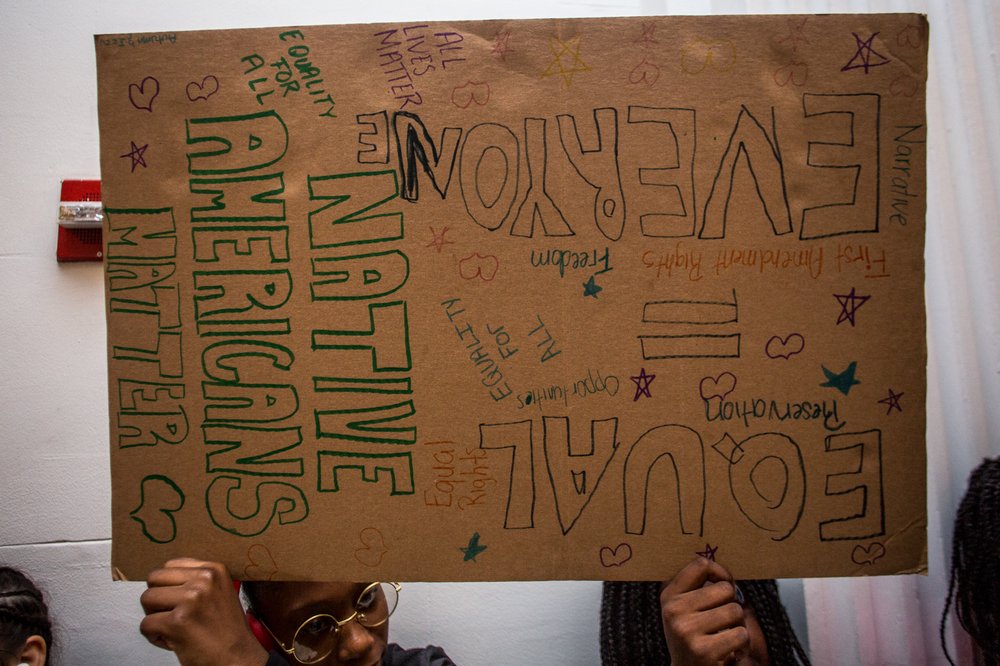 ALL
LIVES
MATTER
EQUALITY
FOR
ALL
NATIVE
AMERICANS
MATTER
EVERYONE
Narrative
First Amendment Rights
Freedom
=
EQUALITY
FOR
ALL
Opportunities
Reservation
EQUAL
Equal
Rights